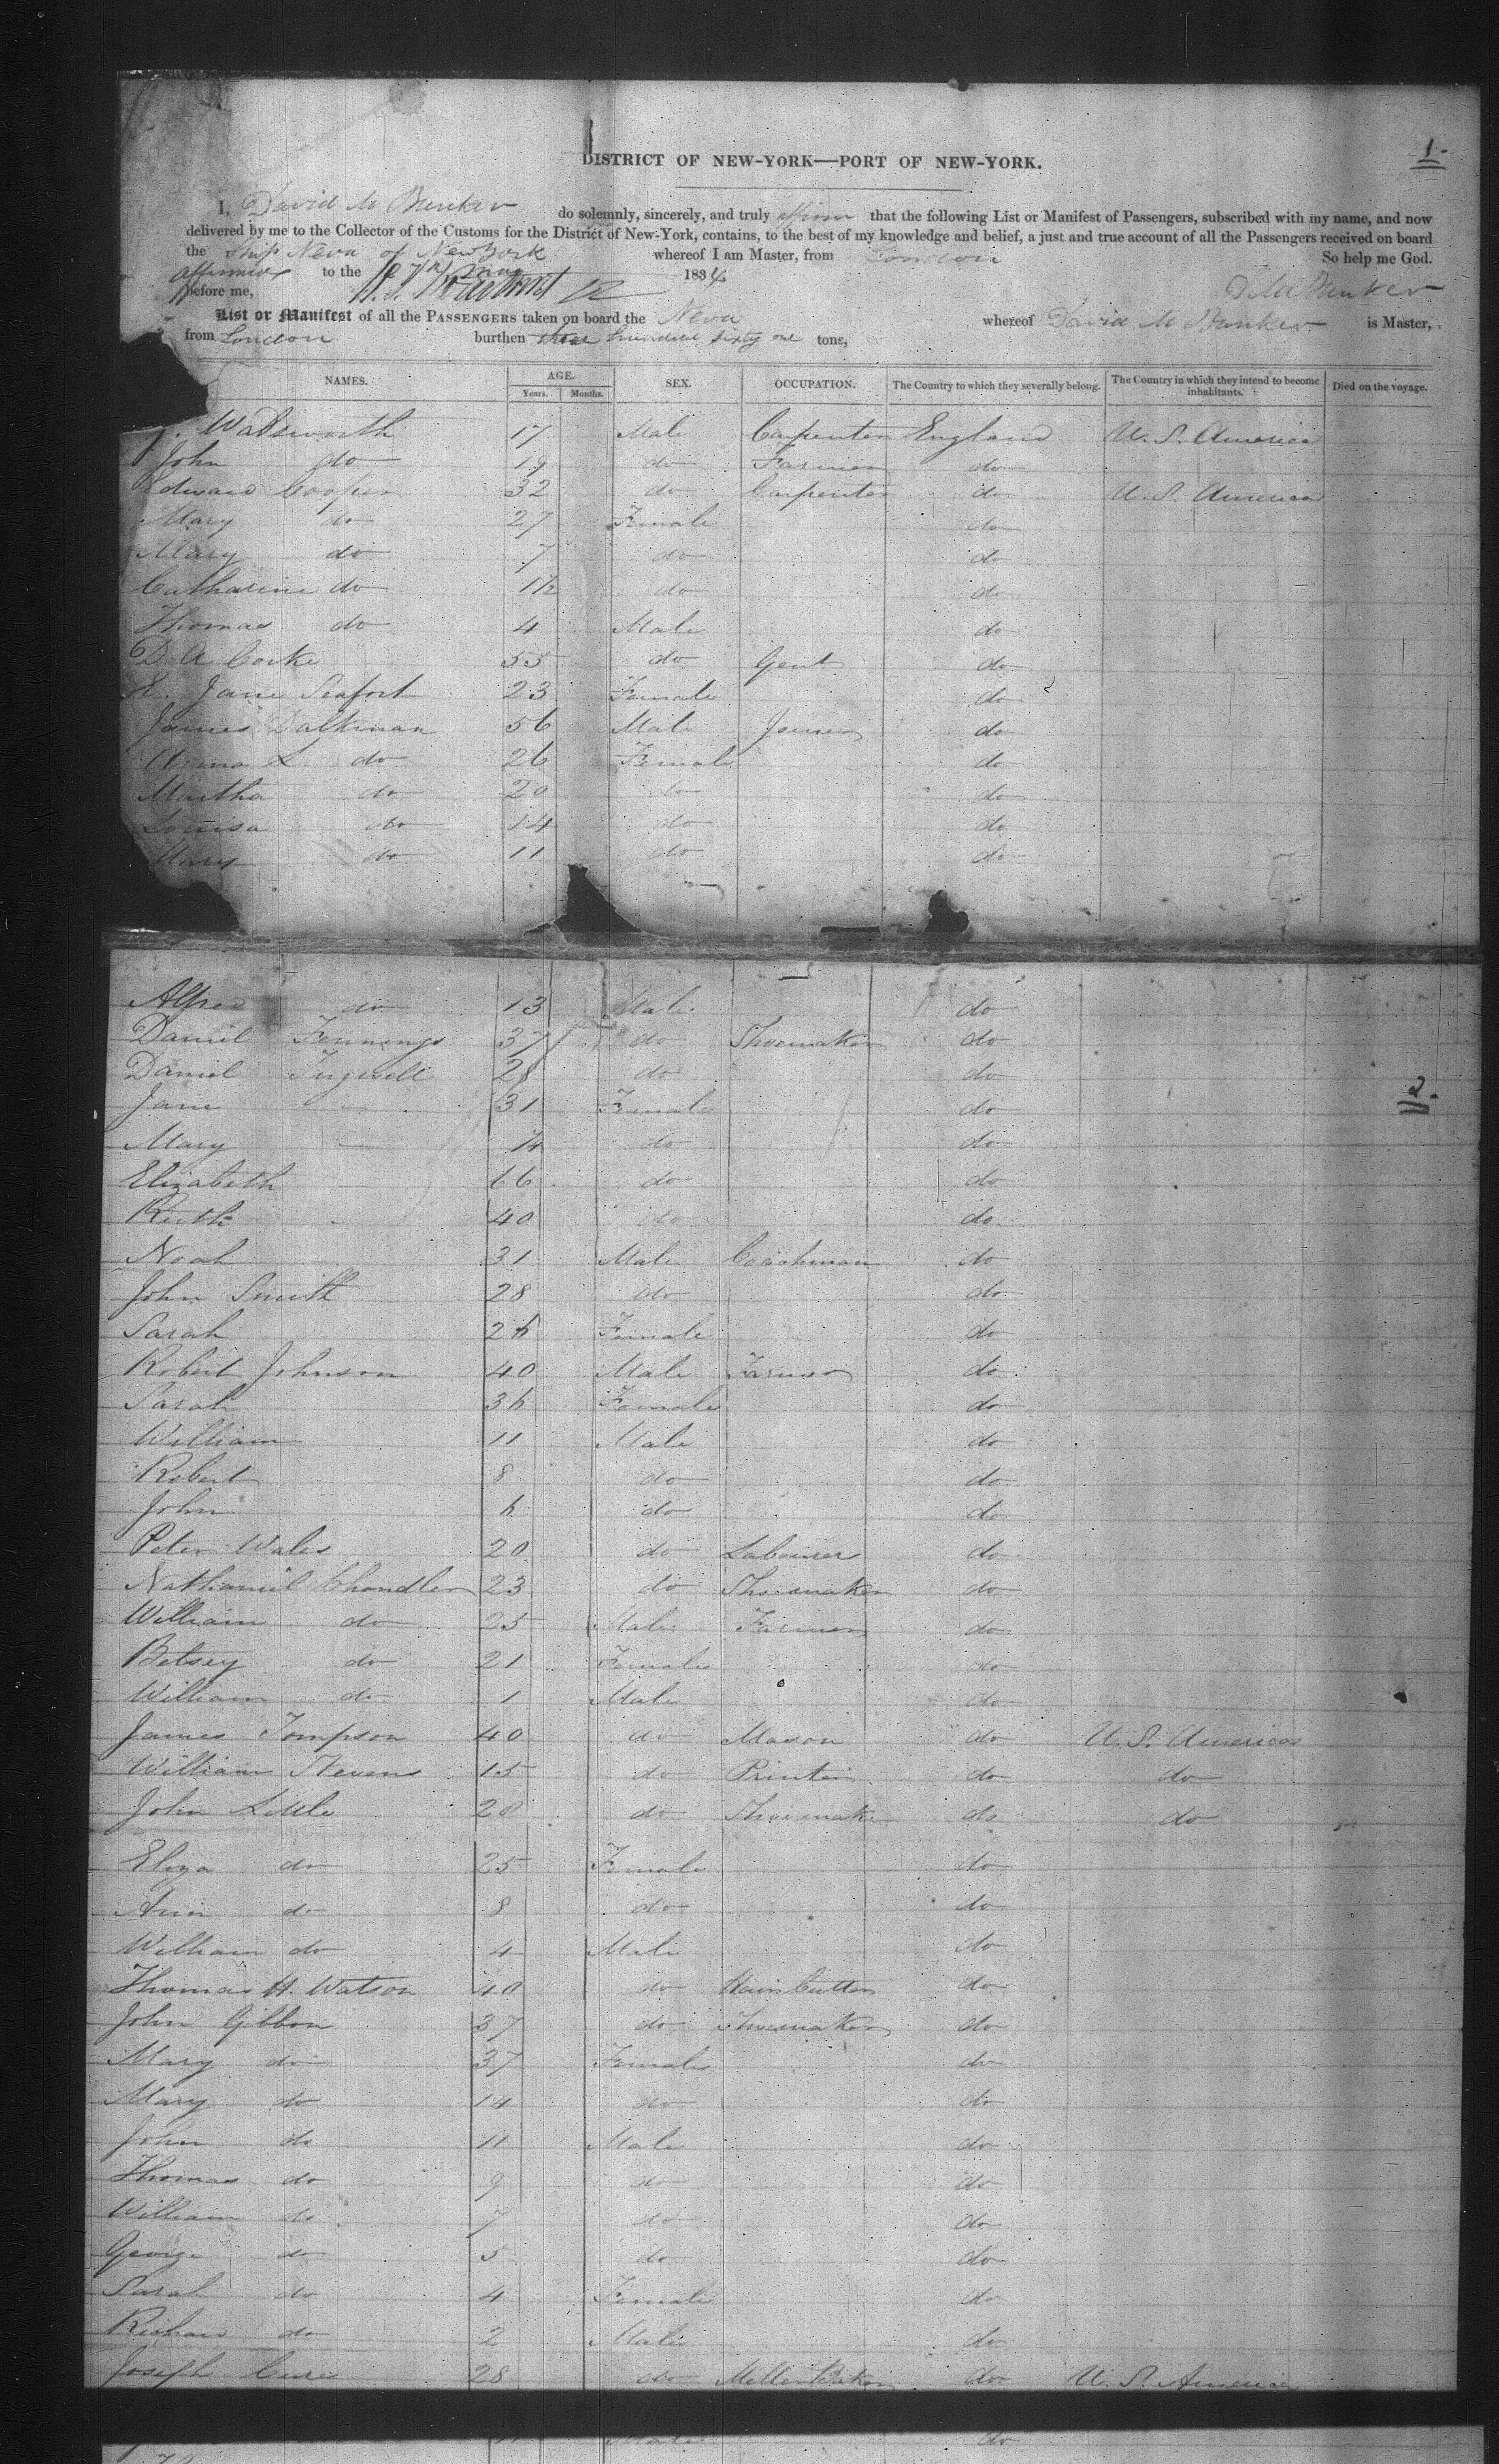 1.
DISTRICT OF NEW-YORK—PORT OF NEW-YORK.
I, David M Bunker do solemnly, sincerely, and truly affirm that the following List or Manifest of Passengers, subscribed with my name, and now
delivered by me to the Collector of the Customs for the District of New-York, contains, to the best of my knowledge and belief, a just and true account of all the Passengers received on board
the Ship Neva of New York whereof I am Master, from London So help me God.
affirmed to the 1834
before me, D M Bunker
List or Manifest of all the PASSENGERS taken on board the Neva whereof David M Bunker is Master,
from London burthen three hundred sixty one tons,
NAMES. AGE. Years. Months. SEX. OCCUPATION. The Country to which they severally belong. The Country in which they intend to become inhabitants. Died on the voyage.
Wadsworth 17 Male Carpenter England U. S. America
John do 19 do Farmer do
Edward Cooper 32 do Carpenter do U. S. America
Mary do 27 Female do
Mary do 7 do do
Catharine do 1½ do do
Thomas do 4 Male do
D A Cooke 55 do Gent do
E. Jane Seafort 23 Female do
James Dalkman 56 Male Joiner do
Anna L. do 26 Female do
Martha do 20 do do
Louisa do 14 do do
Mary do 11 do do
Alfred do 13 Male do
Daniel Jennings 37 do Shoemaker do
Daniel 28 do do
Jane 31 Female do
2.
Mary do do
Elizabeth 66 do do
Ruth 40 do do
Noah 31 Male Coachman do
John Smith 28 do do
Sarah 26 Female do
Robert Johnson 40 Male Farmer do
Sarah 36 Female do
William 11 Male do
Robert 8 do do
John 6 do do
Peter Wales 20 do Labourer do
Nathaniel Chandler 23 do Shoemaker do
William do 25 Male Farmer do
Betsey do 21 Female do
William do 1 Male do
James Tompson 40 do Mason do U. S. America
William Stevens 15 do Printer do do
John Little 28 do Shoemake do do
Eliza do 25 Female do
Ann do 8 do do
William do 4 Male do
Thomas H. Watson 40 do Hair Cutter do
John Gibbon 37 do Shoemaker do
Mary do 37 Female do
Mary do 14 do do
John do 11 Male do
Thomas do 9 do do
William do 7 do do
George do 5 do do
Sarah do 4 Female do
Richard do 2 Male do
Joseph 28 do do U. S. America
11 Male do